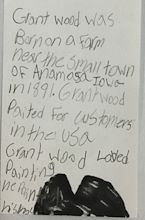 Grant wood was
Born on a farm
near the small town
of Anamosa Iowa
in 1891. Grant wood
Paited For customers
in the usa
Grant wood Loved
Painting
he Pain